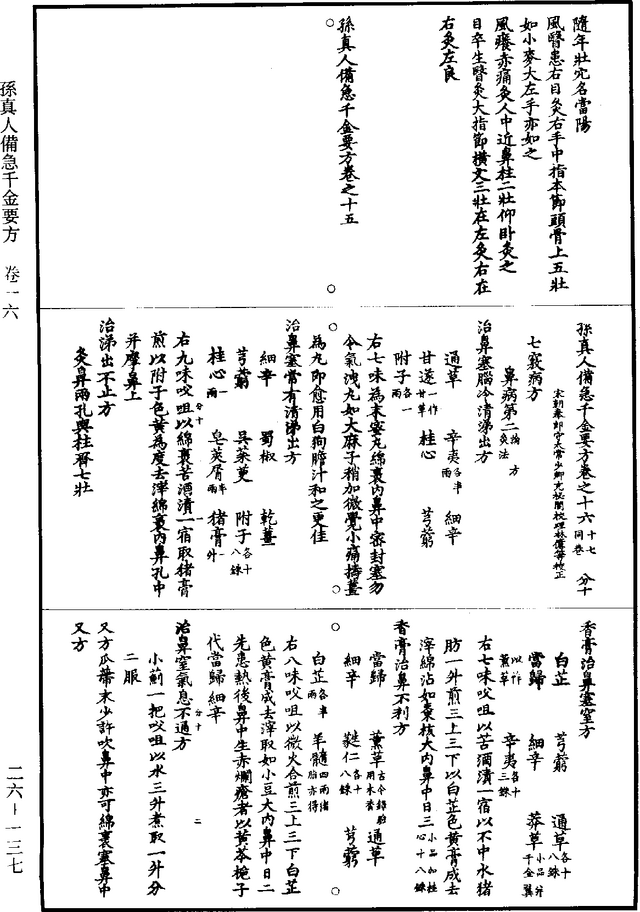 孫真人備急千金要方　卷一六
二六–一三七
隨年壯穴名當陽
風瞖患右目灸右手中指本節頭骨上五壯
如小麥大左手亦如之
風癢赤痛灸人中近鼻柱二壯仰臥灸之
目卒生瞖灸大指節橫文三壯在左灸右在
右灸左良
孫真人備急千金要方卷之十五
孫真人備急千金要方卷之十六 十七同卷 分十
宋朝奉郎守太常少卿充秘閣校理林億等校正
七竅病方
鼻病第二 論 方 灸法
治鼻塞腦冷清涕出方
通草 辛夷各半兩 細辛
甘遂一作甘草 桂心 芎藭
附子各一兩
右七味為末蜜丸綿裹內鼻中密封塞勿
令氣洩丸如大麻子稍加微覺小痛擣薑
為丸即愈用白狗膽汁和之更佳
治鼻塞常有清涕出方
細辛 蜀椒 乾薑
芎藭 吳茱萸 附子各十八銖
桂心一兩 皂莢屑半兩 豬膏一升
右九味㕮咀以綿裹苦酒漬一宿取豬膏
煎以附子色黃為度去滓綿裹內鼻孔中
并摩鼻上
治涕出不止方
灸鼻兩孔與柱齊七壯
香膏治鼻塞窒方
白芷 芎藭 通草各十八銖
當歸 細辛 莽草小品并千金翼
以作薰草 辛夷各三十銖
右七味㕮咀以苦酒漬一宿以不中水豬
肪一升煎三上三下以白芷色黃膏成去
滓綿沾如棗核大內鼻中日三小品加桂心十八銖
香膏治鼻不利方
當歸 薰草古今錄驗用木香 通草
細辛 蕤仁各十八銖 芎藭
白芷各半兩 羊髓四兩豬脂亦得
右八味㕮咀以微火合煎三上三下白芷
色黃膏成去滓取如小豆大內鼻中日二
先患熱後鼻中生赤爛瘡者以黃芩梔子
代當歸細辛
治鼻窒氣息不通方
小薊一把㕮咀以水三升煮取一升分
二服
又方瓜蔕末少許吹鼻中亦可綿裹塞鼻中
又方